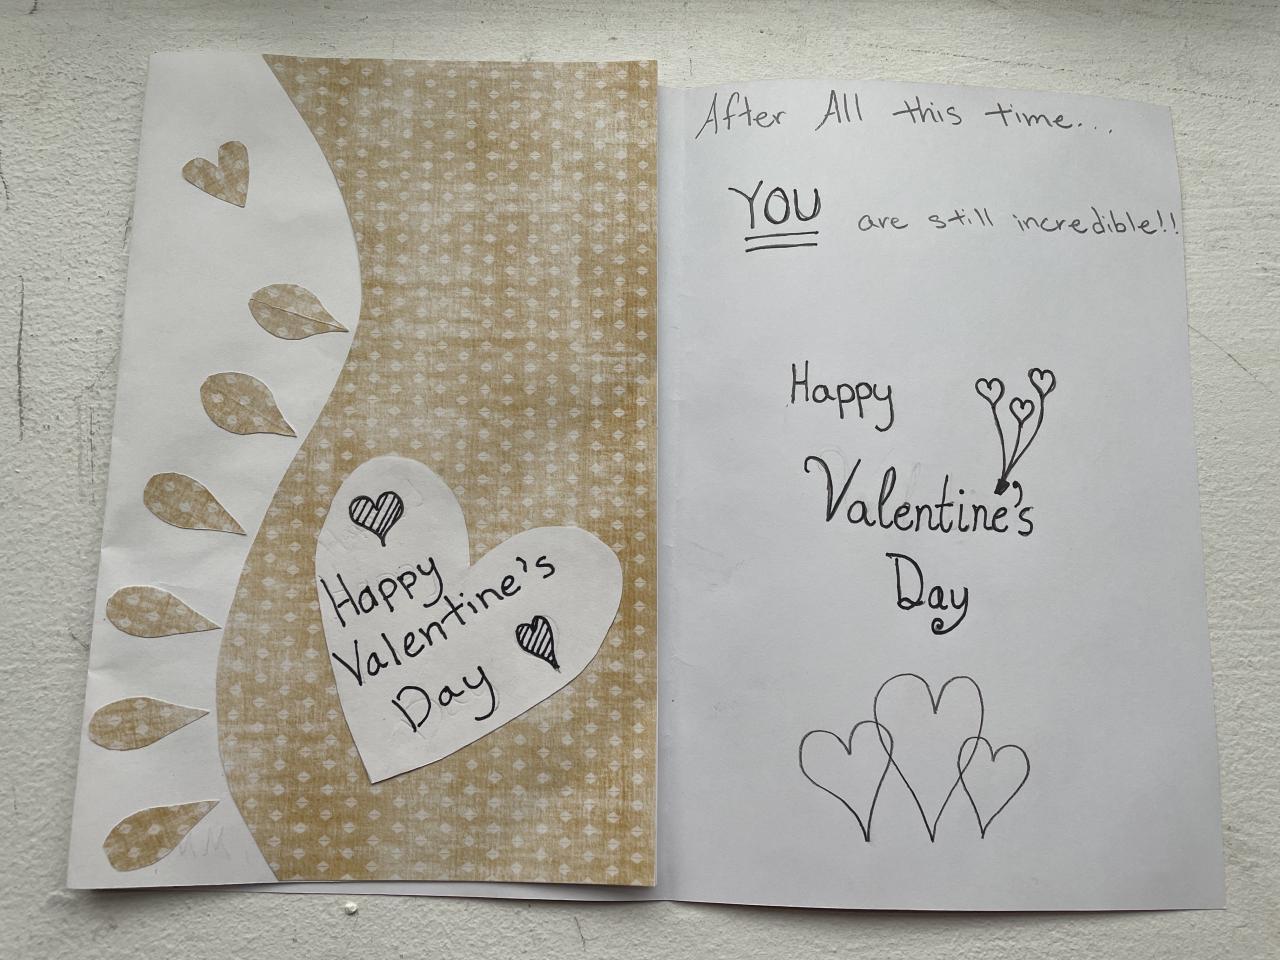 Happy
Valentine's
Day
After All this time...
YOU are still incredible!!
Happy
Valentine's
Day